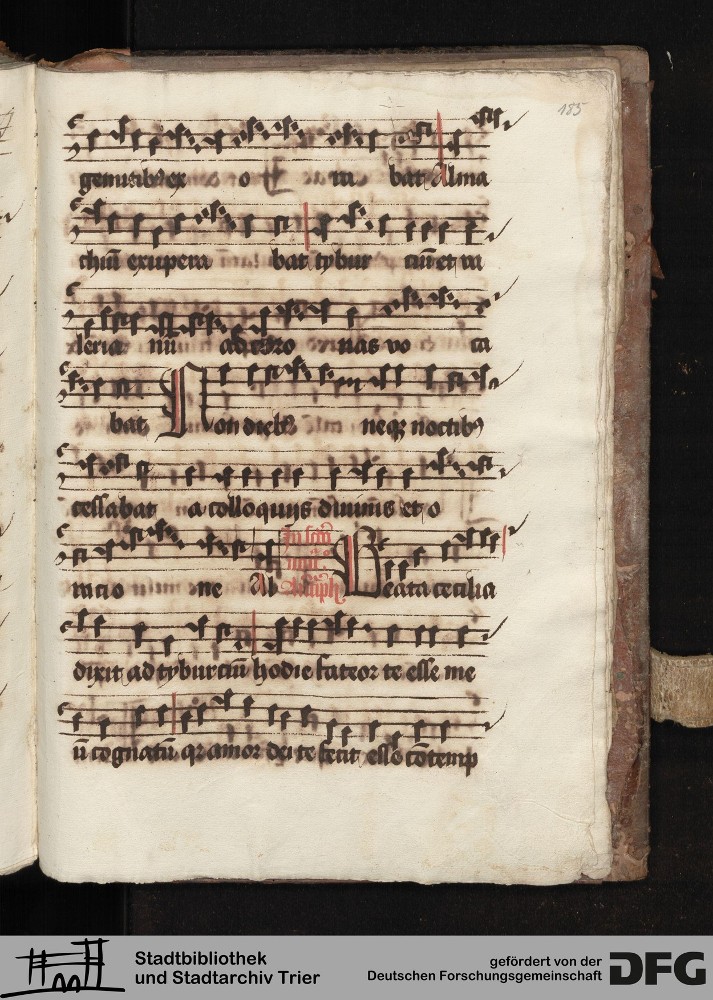 185
gemitib9 ex o ra bat Alma
chiũ exupera bat tybur ciũ et va
leria nũ ad coro nas vo ca
bat Non dieb9 neqz noctib9
cessabat a colloquijs diuinis et o
racio ne Ab Beata cecilia
dixit ad tyburciũ hodie fateor te esse me
ũ cognatũ qz amor dei te fecit esse cõtemp
Stadtbibliothek
und Stadtarchiv Trier
gefördert von der
Deutschen Forschungsgemeinschaft
DFG